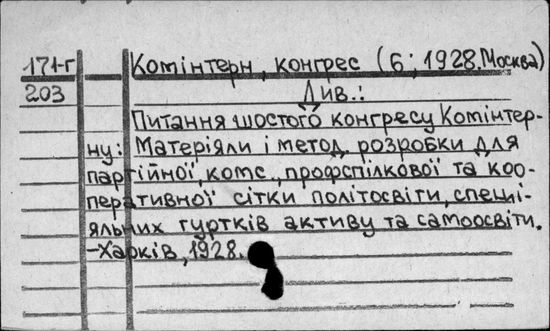 171-г Комінтерн, конгрес (6; 1928, Москва)
203 Див.:
Питання шостого конгресу Комінтер-
ну: Матеріяли і метод. розробки для
партійної, комс., профспілкової та коо-
перативної сітки політосвіти, спеці-
яльних гуртків активу та самоосвіти.
-Харків, 1928.